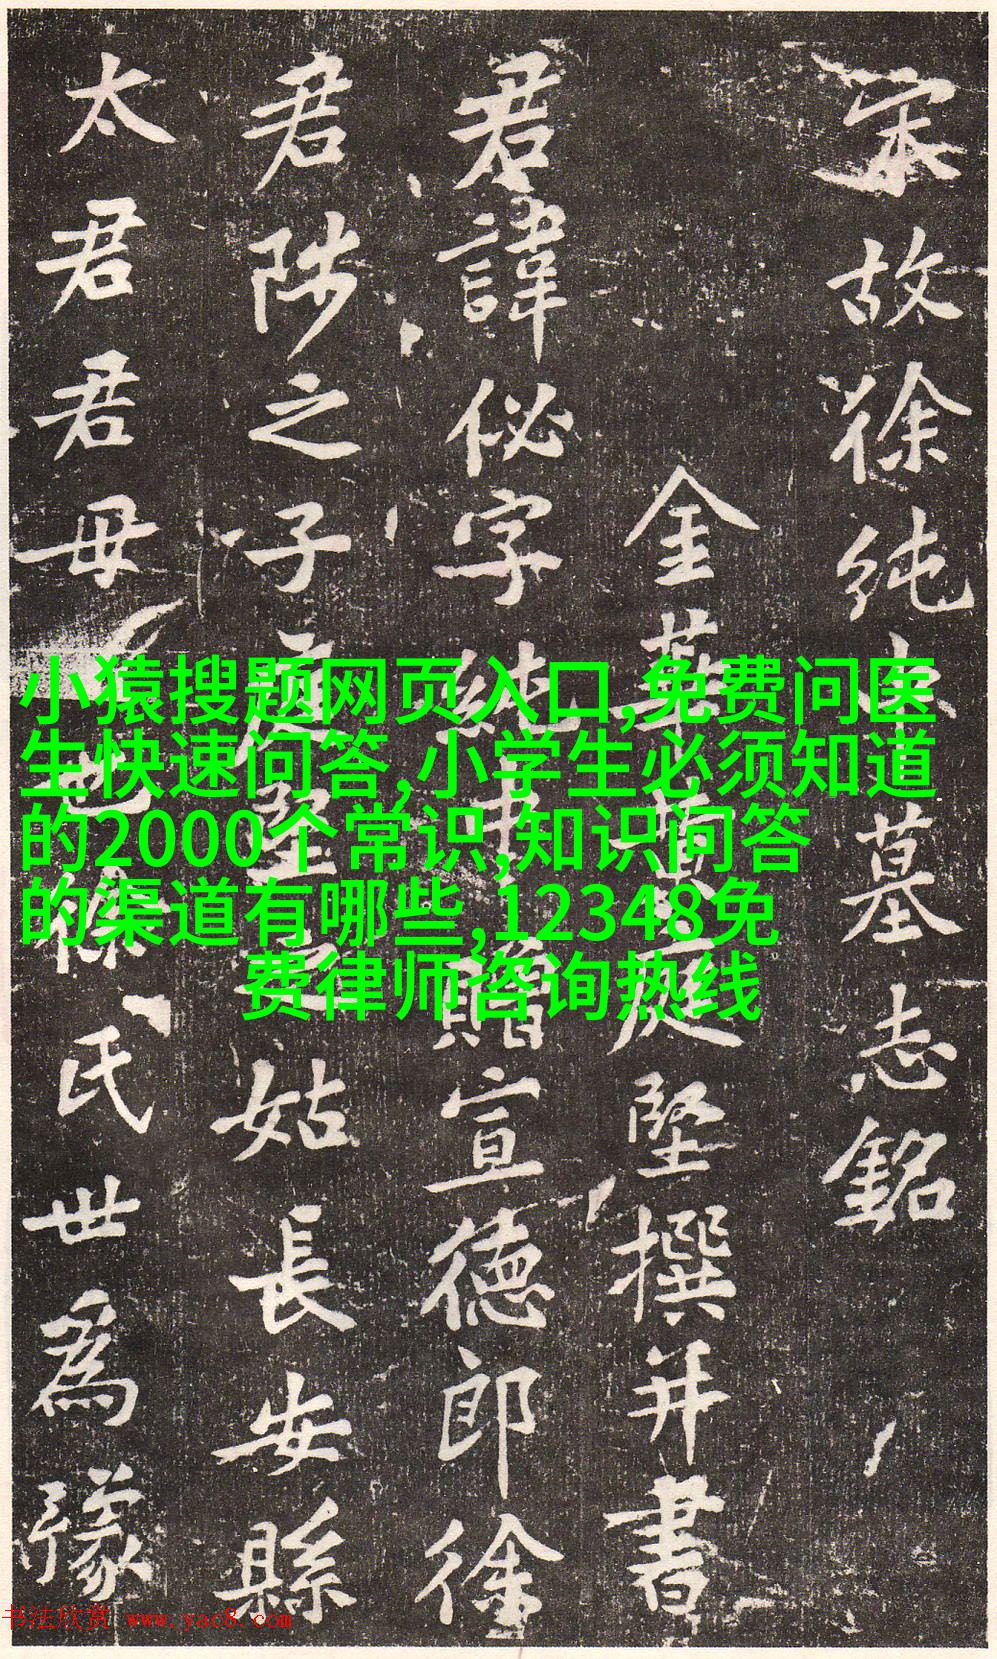 宋故徐純中墓志銘
金華黃庭堅撰并書
君諱佖字純中贈宣德郎徐
君陟之子庭堅之姑長安縣
太君君母也徐氏世爲豫
小猿搜题网页入口,免费问医
生快速问答,小学生必须知道
的2000个常识,知识问答
的渠道有哪些,12348免
费律师咨询热线
书法欣赏 www.yac8.com